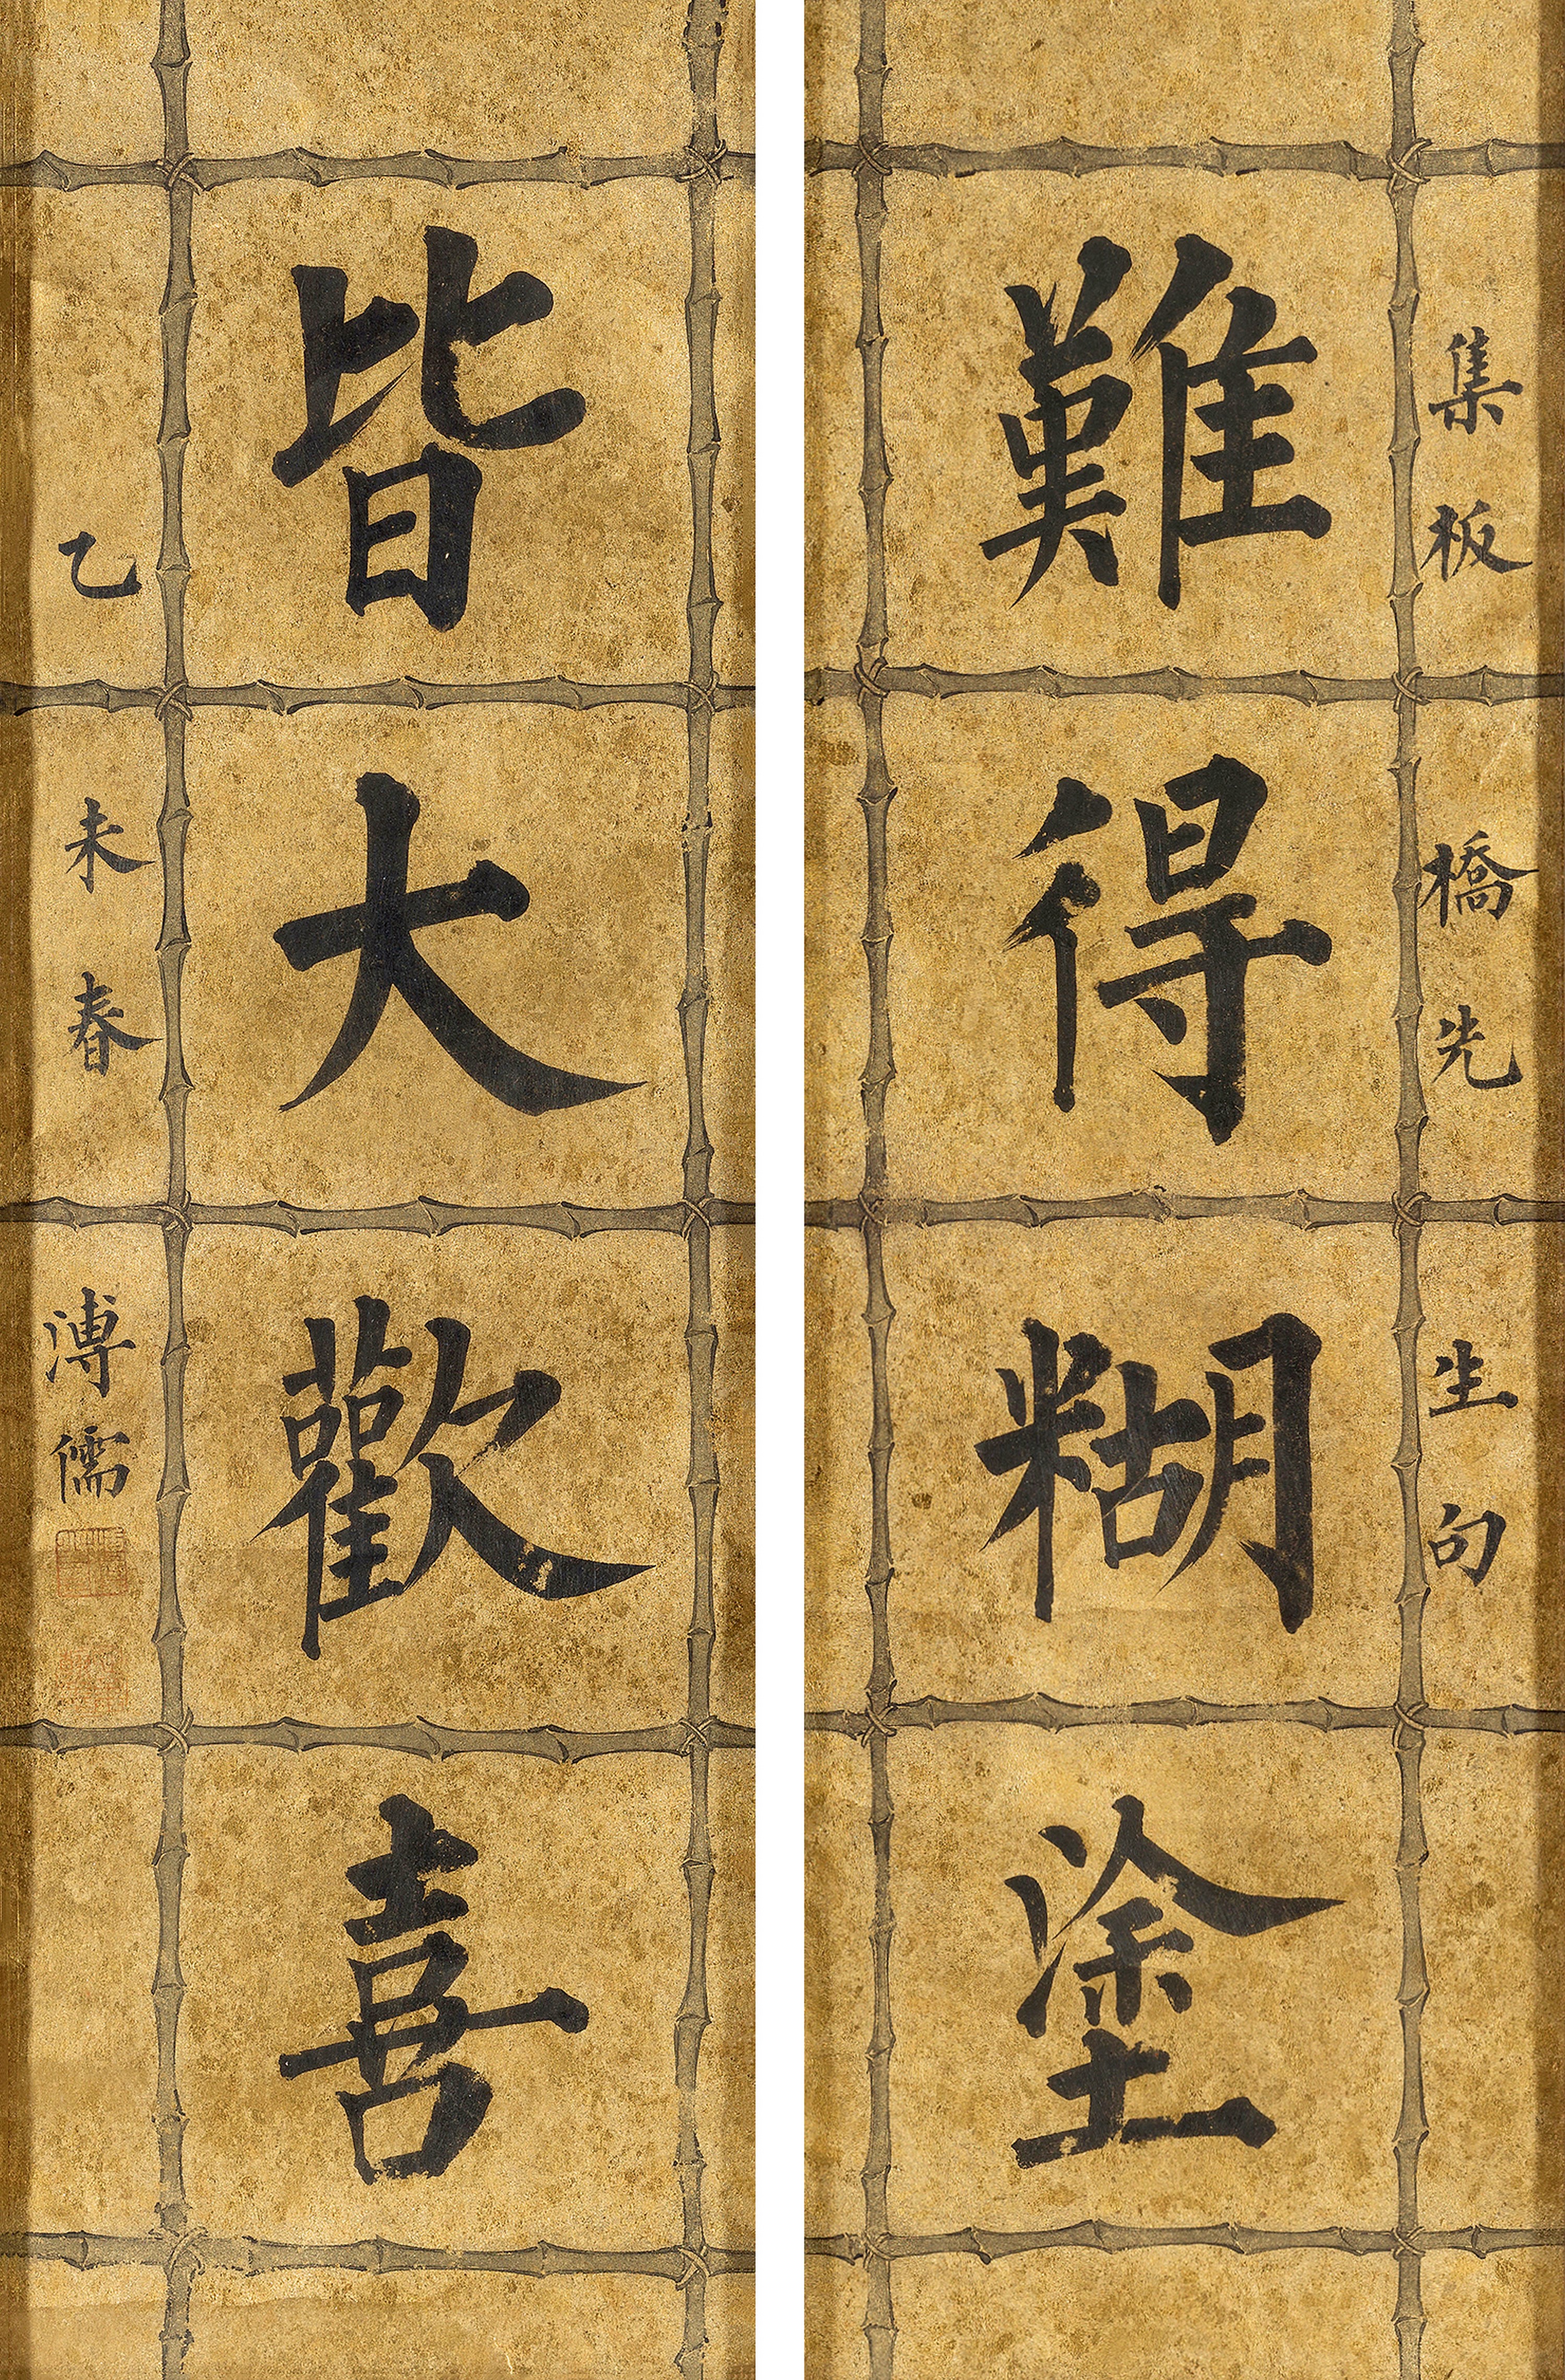 集板橋先生句
難得糊塗
皆大歡喜
乙未春溥儒